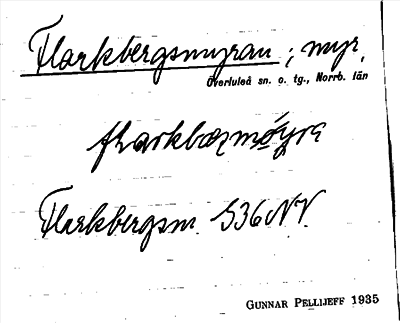 Flarkbergsmyran ; myr,
Överluleå sn. o. tg., Norrb. län
flarkbærsmǿyra
Flarkbergsm. S36NV.
GUNNAR PELLIJEFF 1935